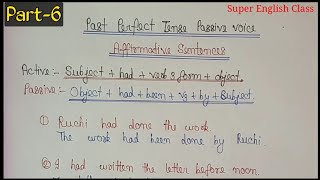 Part-6
Super English Class
Past Perfect Tense Passive Voice
Affirmative Sentences
Active:- Subject + had + verb 3 form + object.
Passive:- Object + had + been + V3 + by + Subject.
① Ruchi had done the work.
The work had been done by Ruchi.
② I had written the letter before noon